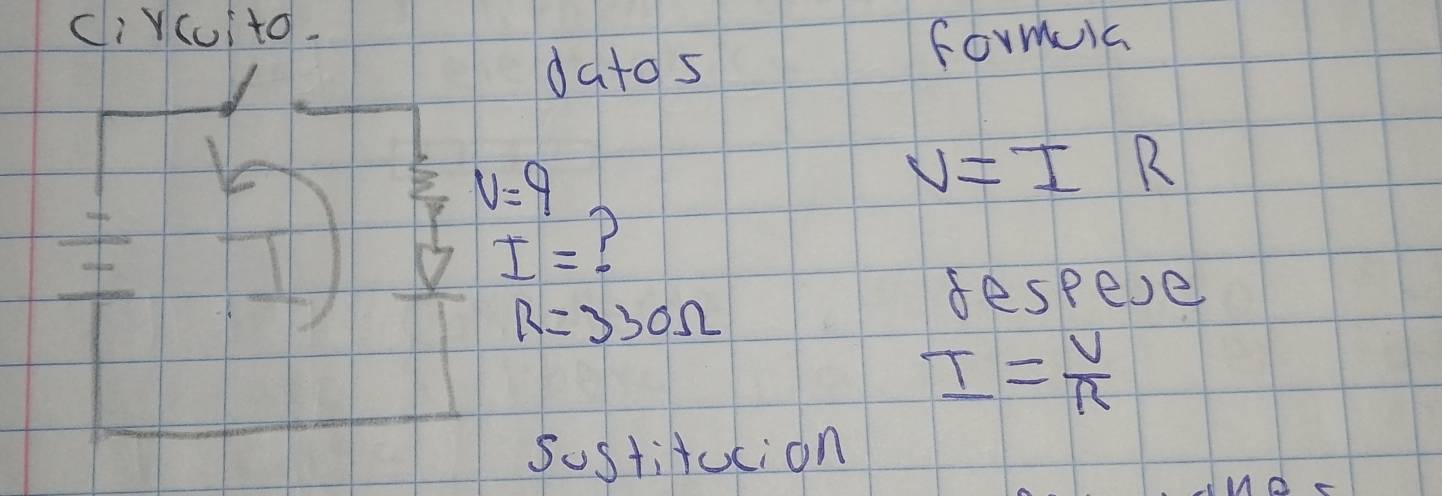 Circuito.
datos
formula
V=9
I=?
R=330Ω
V=I R
despeje
I=V/R
Sustitucion